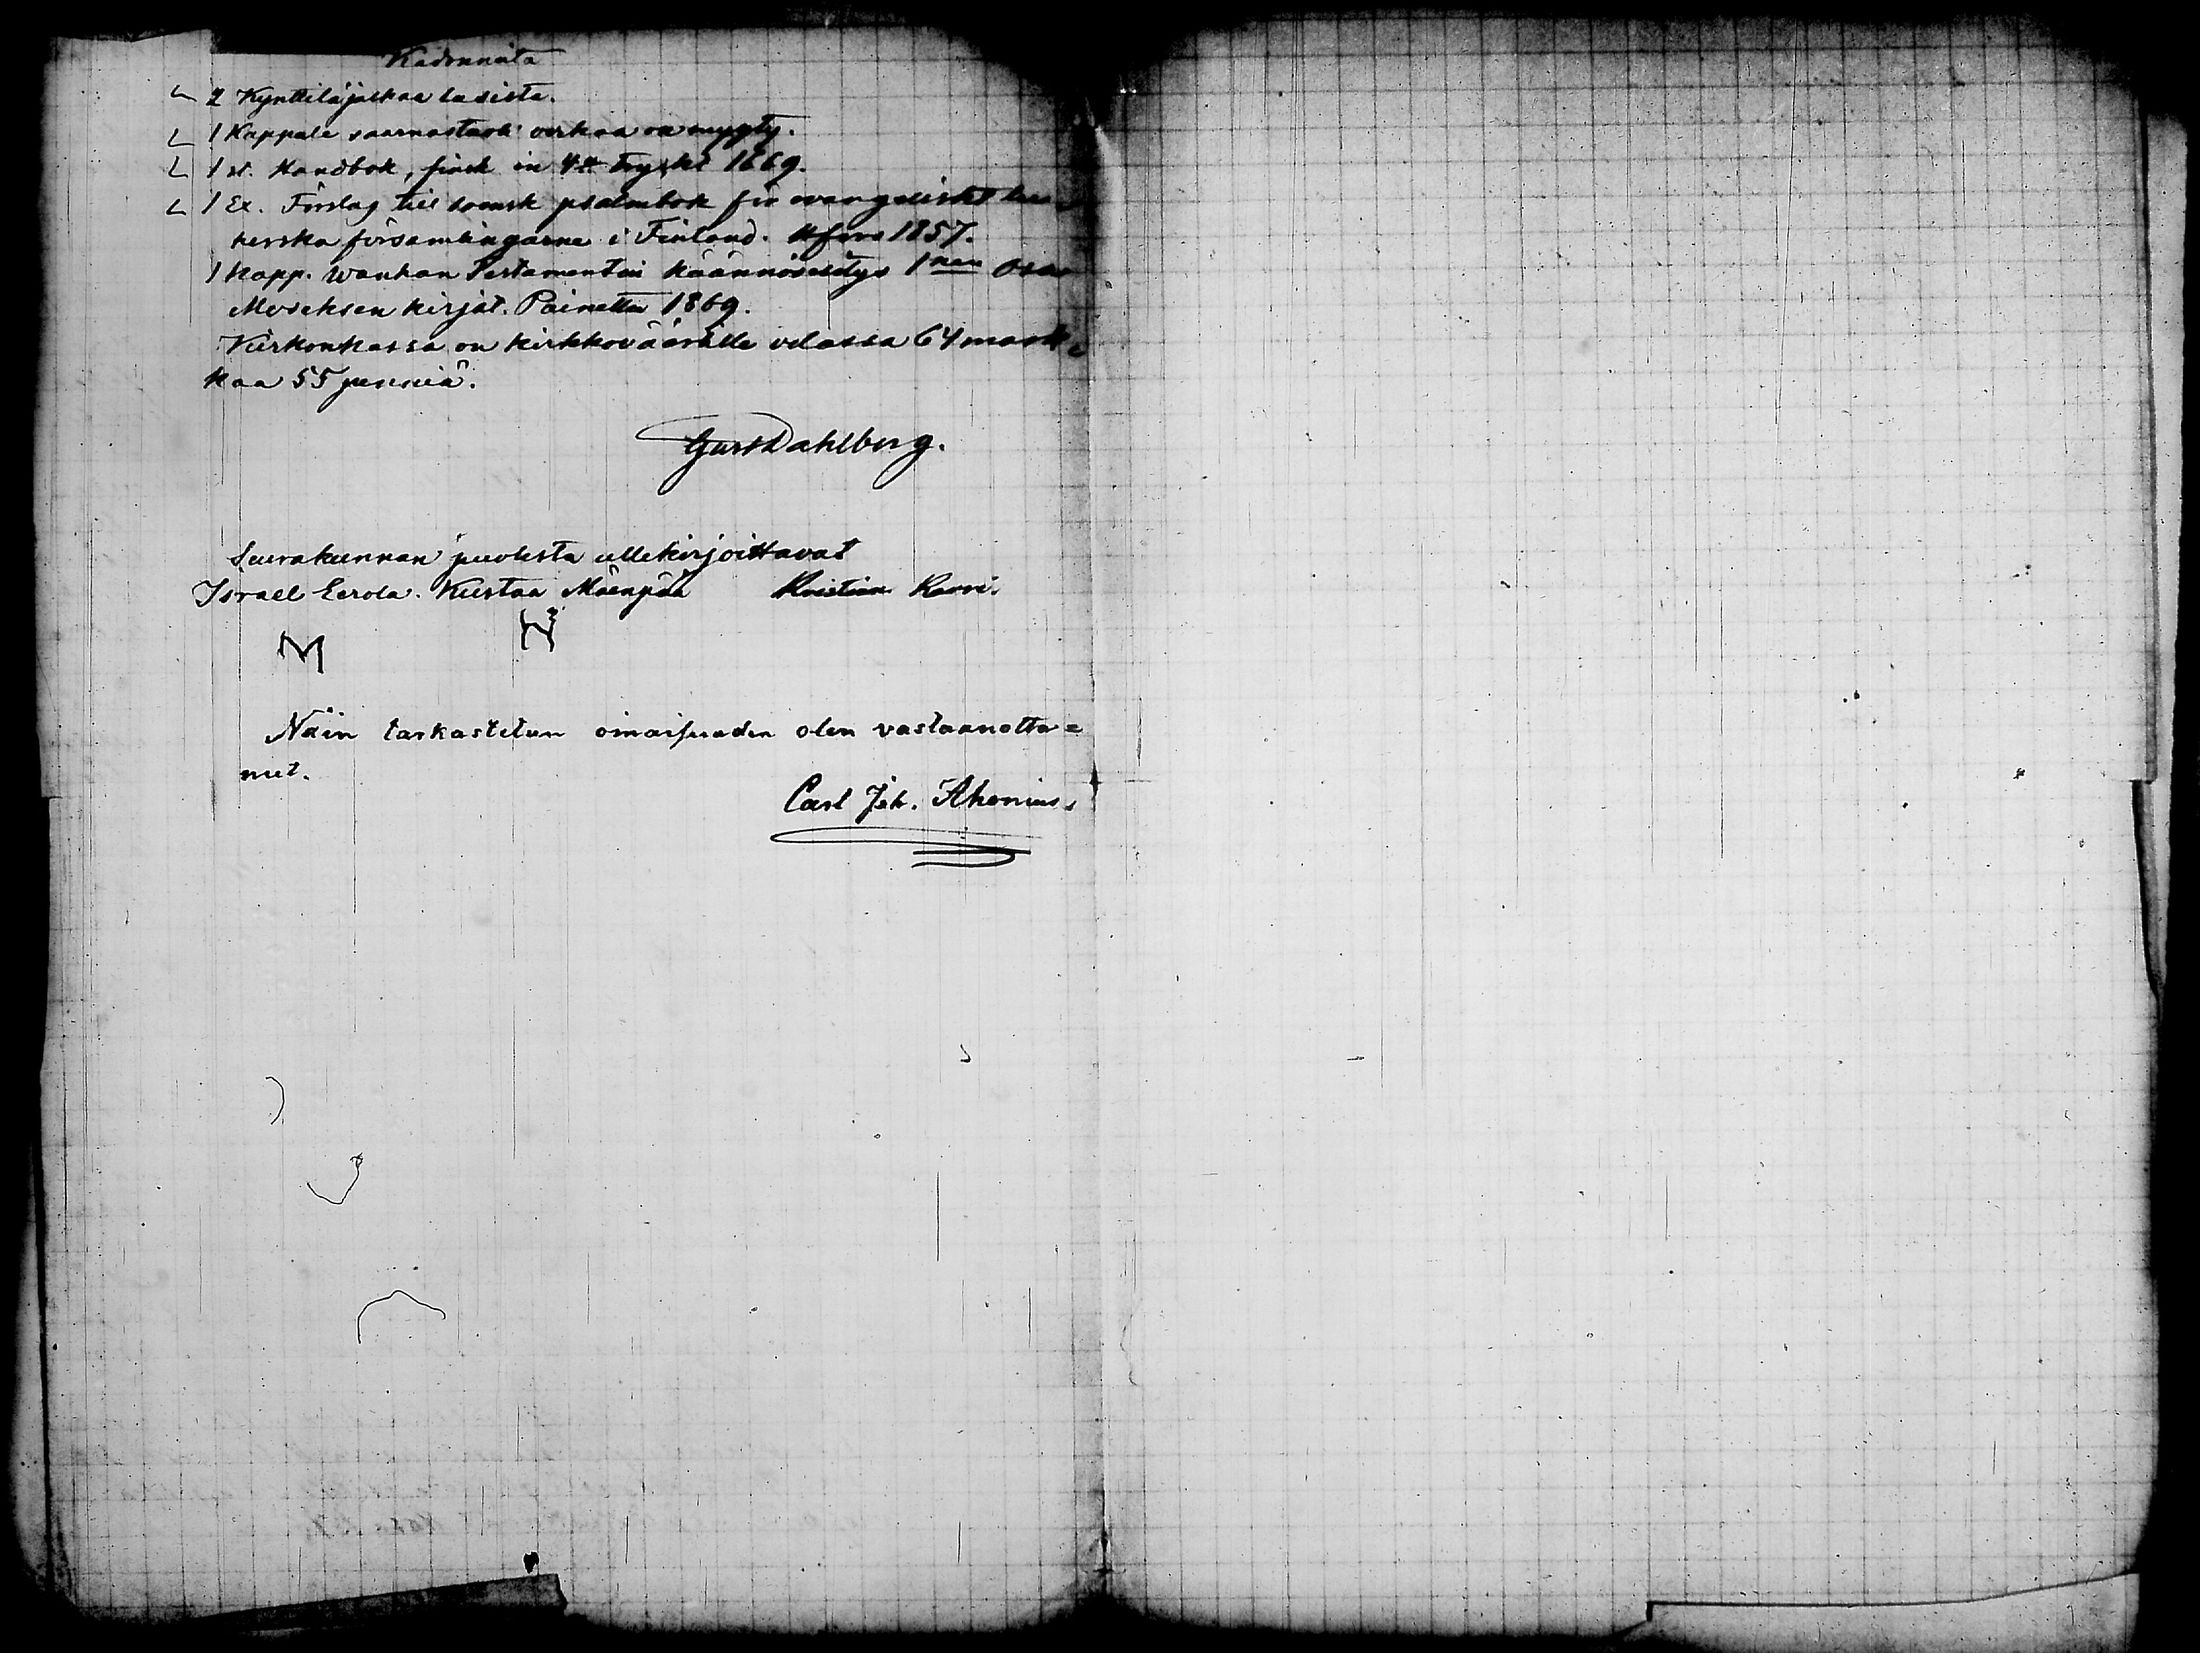 Kadonneita
2 Kynttiläjalkaa lasista.
1 Kappale saarnastuoli verkaa on myyty.
1 st. Handbok, finsk in 4:o tryckt 1669.
1 Ex. Förslag till svensk psalmbok för evangeliskt lut
herska församlingarne i Finland. H:fors 1857.
1 Kapp. Wanhan Testamentin käännösesitys 1nen Osa
Moseksen kirjat. Painettu 1869.
Kirkonkassa on kirkkoväärille velassa 64 mark
kaa 55 penniä.
Gust Dahlberg.
Seurakunnan puolesta allekirjoittavat
Israel Eerola. Kustaa Mäenpää Kristian
Näin tarkastetun omaisuuden olen vastaanotta=
nut.
Carl Joh. Ahonius.